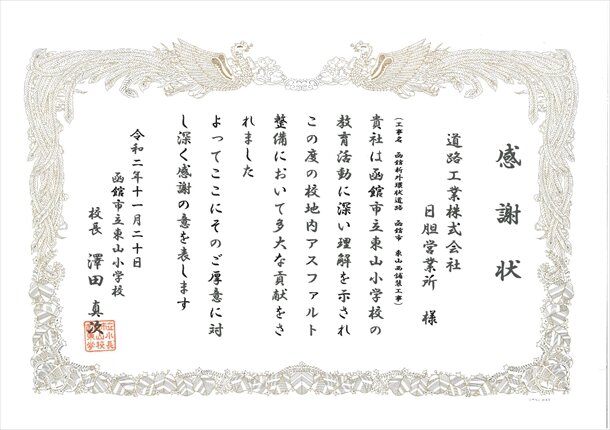 感謝状
道路工業株式会社
日胆営業所 様
(工事名 函館新外環状道路 函館市 東山西舗装工事)
貴社は函館市立東山小学校の
教育活動に深い理解を示され
この度の校地内アスファルト
整備において多大な貢献をさ
れました
よってここにそのご厚意に対
し深く感謝の意を表します
令和二年十一月二十日
函館市立東山小学校
校長 澤田 真次